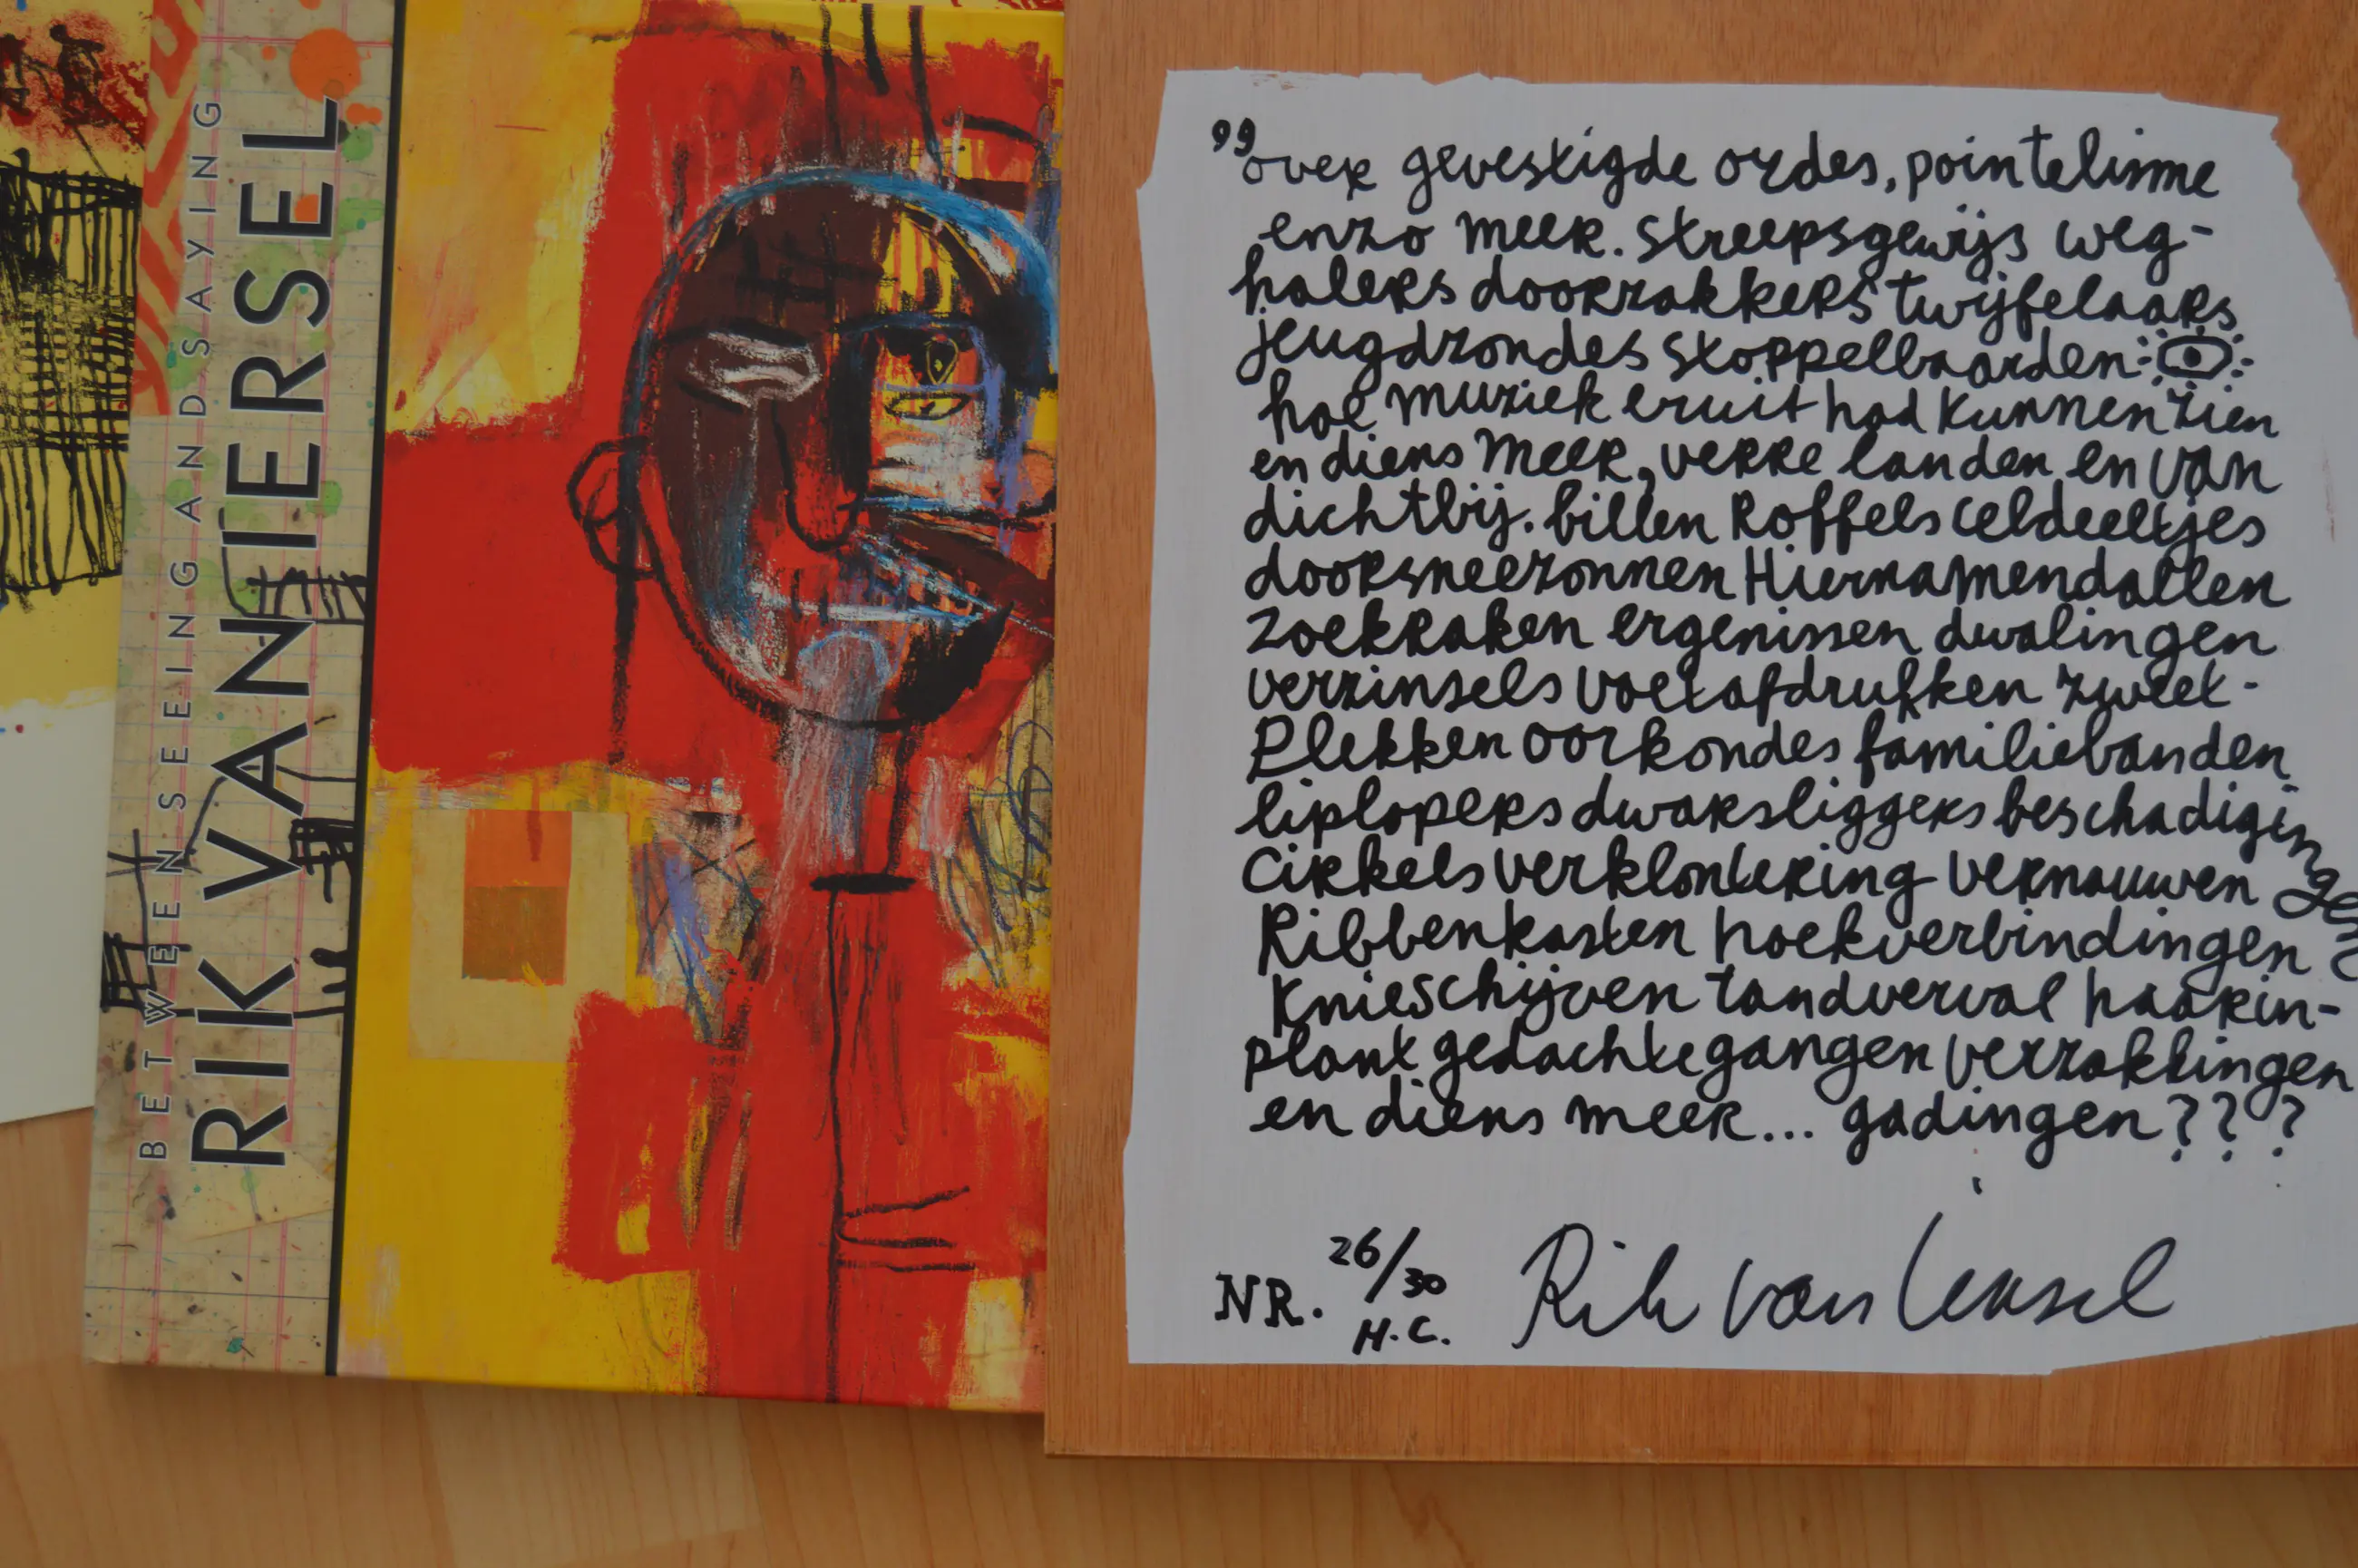 BETWEEN SEEING AND SAYING
RIK VAN IERSEL
"over gevestigde ordes, pointelisme
enzo meer. streepsgewijs weg-
halers doorzakkers twijfelaars
jeugdzondes stoppelbaarden
hoe muziek eruit had kunnen zien
en diens meer, verre landen en van
dichtbij. billen Roffels celdeeltjes
doorsneezonnen Hiernamendallen
zoekraken ergenissen dwalingen
verzinsels voetafdrukken zweet-
Plekken oorkondes familiebanden
liplopers dwarsliggers beschadigingen
cirkels verklontering vernauwen
Ribbenkasten hoekverbindingen
Knieschijven tandverval haarin-
plant gedachtegangen verzakkingen
en diens meer... gadingen???
NR. 26/30
H.C.
Rik van Iersel